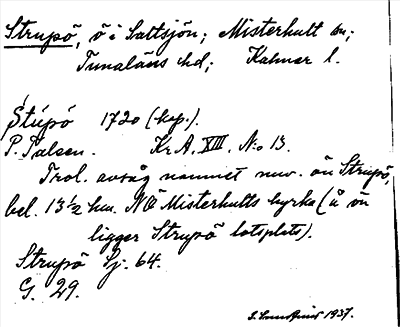 Strupö, ö i Saltsjön; Misterhult sn;
Tunaläns hd; Kalmar l.
Stúpö 1720 (kop.).
P. Palsen. Kr. A. XIII. N:o 13.
Trol. avsåg namnet nuv. ön Strupö,
bel. 13½ km. NÖ Misterhults kyrka (å ön
ligger Strupö lotsplats).
Strupö Sj. 64.
G. 29.
1937.